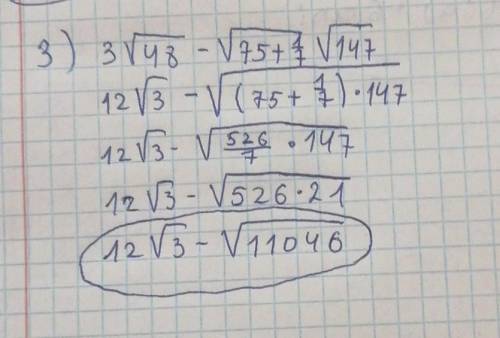 3) 3√48 - √(75+1/7) √147
12√3 - √((75+1/7)·147)
12√3 - √(526/7 · 147)
12√3 - √(526·21)
12√3 - √11046